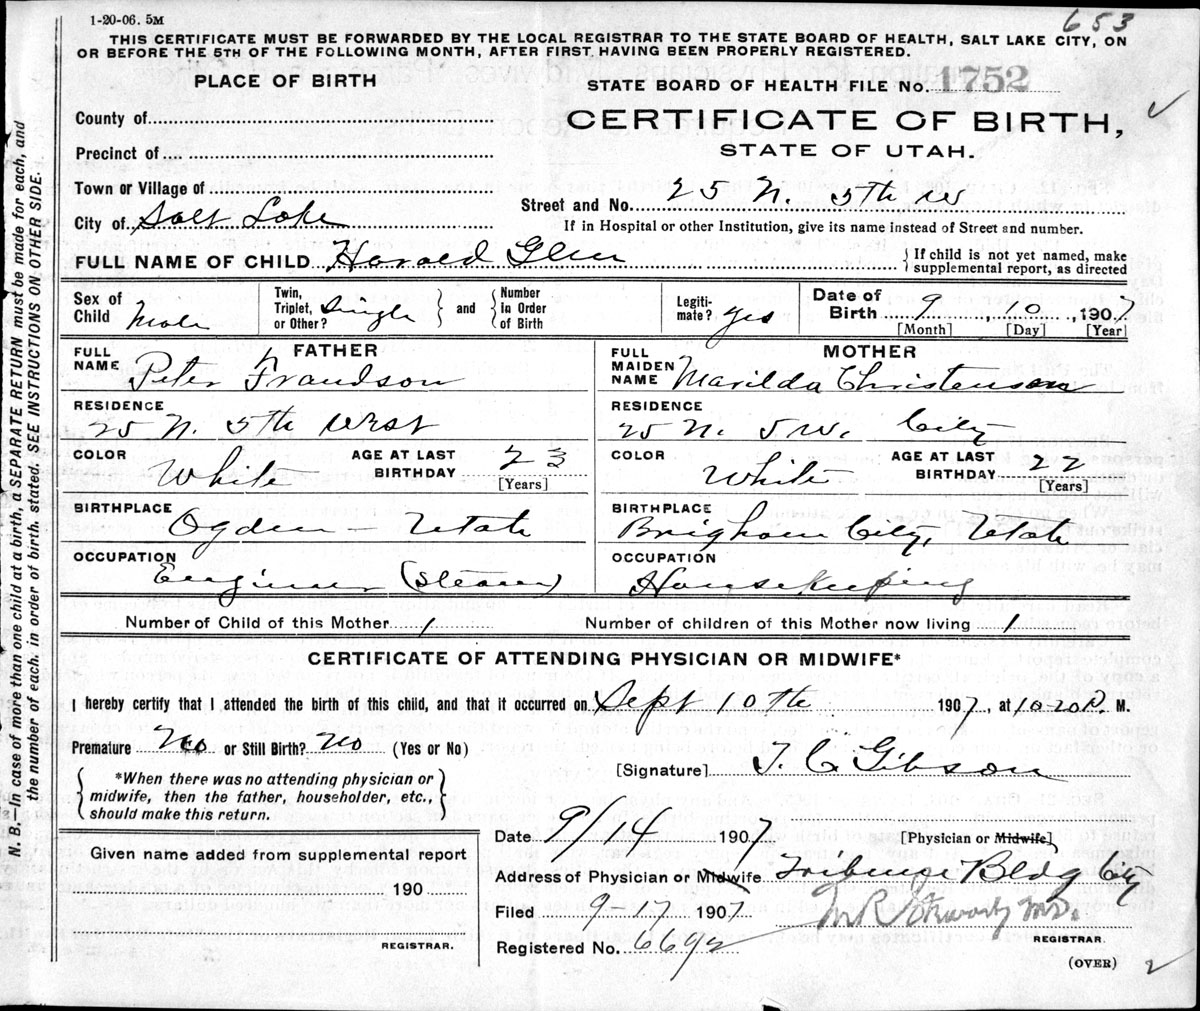 1-20-06. 5M
653
THIS CERTIFICATE MUST BE FORWARDED BY THE LOCAL REGISTRAR TO THE STATE BOARD OF HEALTH, SALT LAKE CITY, ON
OR BEFORE THE 5TH OF THE FOLLOWING MONTH, AFTER FIRST HAVING BEEN PROPERLY REGISTERED.
PLACE OF BIRTH
STATE BOARD OF HEALTH FILE No. 1752
County of
CERTIFICATE OF BIRTH,
Precinct of
STATE OF UTAH.
Town or Village of
Street and No. 25 N. 5th W
City of Salt Lake
If in Hospital or other Institution, give its name instead of Street and number.
FULL NAME OF CHILD Harold Glen
If child is not yet named, make
supplemental report, as directed
Sex of Child Male
Twin, Triplet, or Other? Single and Number in Order of Birth
Legitimate? Yes
Date of Birth 9, 10, 1907
[Month] [Day] [Year]
FATHER
FULL NAME Peter Frandson
RESIDENCE
25 N. 5th West
COLOR White AGE AT LAST BIRTHDAY 23
[Years]
BIRTHPLACE
Ogden - Utah
OCCUPATION
Engineer (Steam)
MOTHER
FULL MAIDEN NAME Marilda Christenson
RESIDENCE
25 N. 5 W. City
COLOR White AGE AT LAST BIRTHDAY 22
[Years]
BIRTHPLACE
Brigham City, Utah
OCCUPATION
Housekeeping
Number of Child of this Mother 1 Number of children of this Mother now living 1
CERTIFICATE OF ATTENDING PHYSICIAN OR MIDWIFE*
I hereby certify that I attended the birth of this child, and that it occurred on Sept 10th 1907, at 10-20 P. M.
Premature No or Still Birth? No (Yes or No)
[Signature] T. C. Gibson
*When there was no attending physician or
midwife, then the father, householder, etc.,
should make this return.
Date 9/14 1907 [Physician or Midwife]
Given name added from supplemental report
Address of Physician or Midwife Tribune Bldg City
190
Filed 9-17 1907
REGISTRAR.
M.D.
REGISTRAR.
Registered No. 6692
(OVER)
2
N. B.—In case of more than one child at a birth, a SEPARATE RETURN must be made for each, and
the number of each, in order of birth, stated. SEE INSTRUCTIONS ON OTHER SIDE.